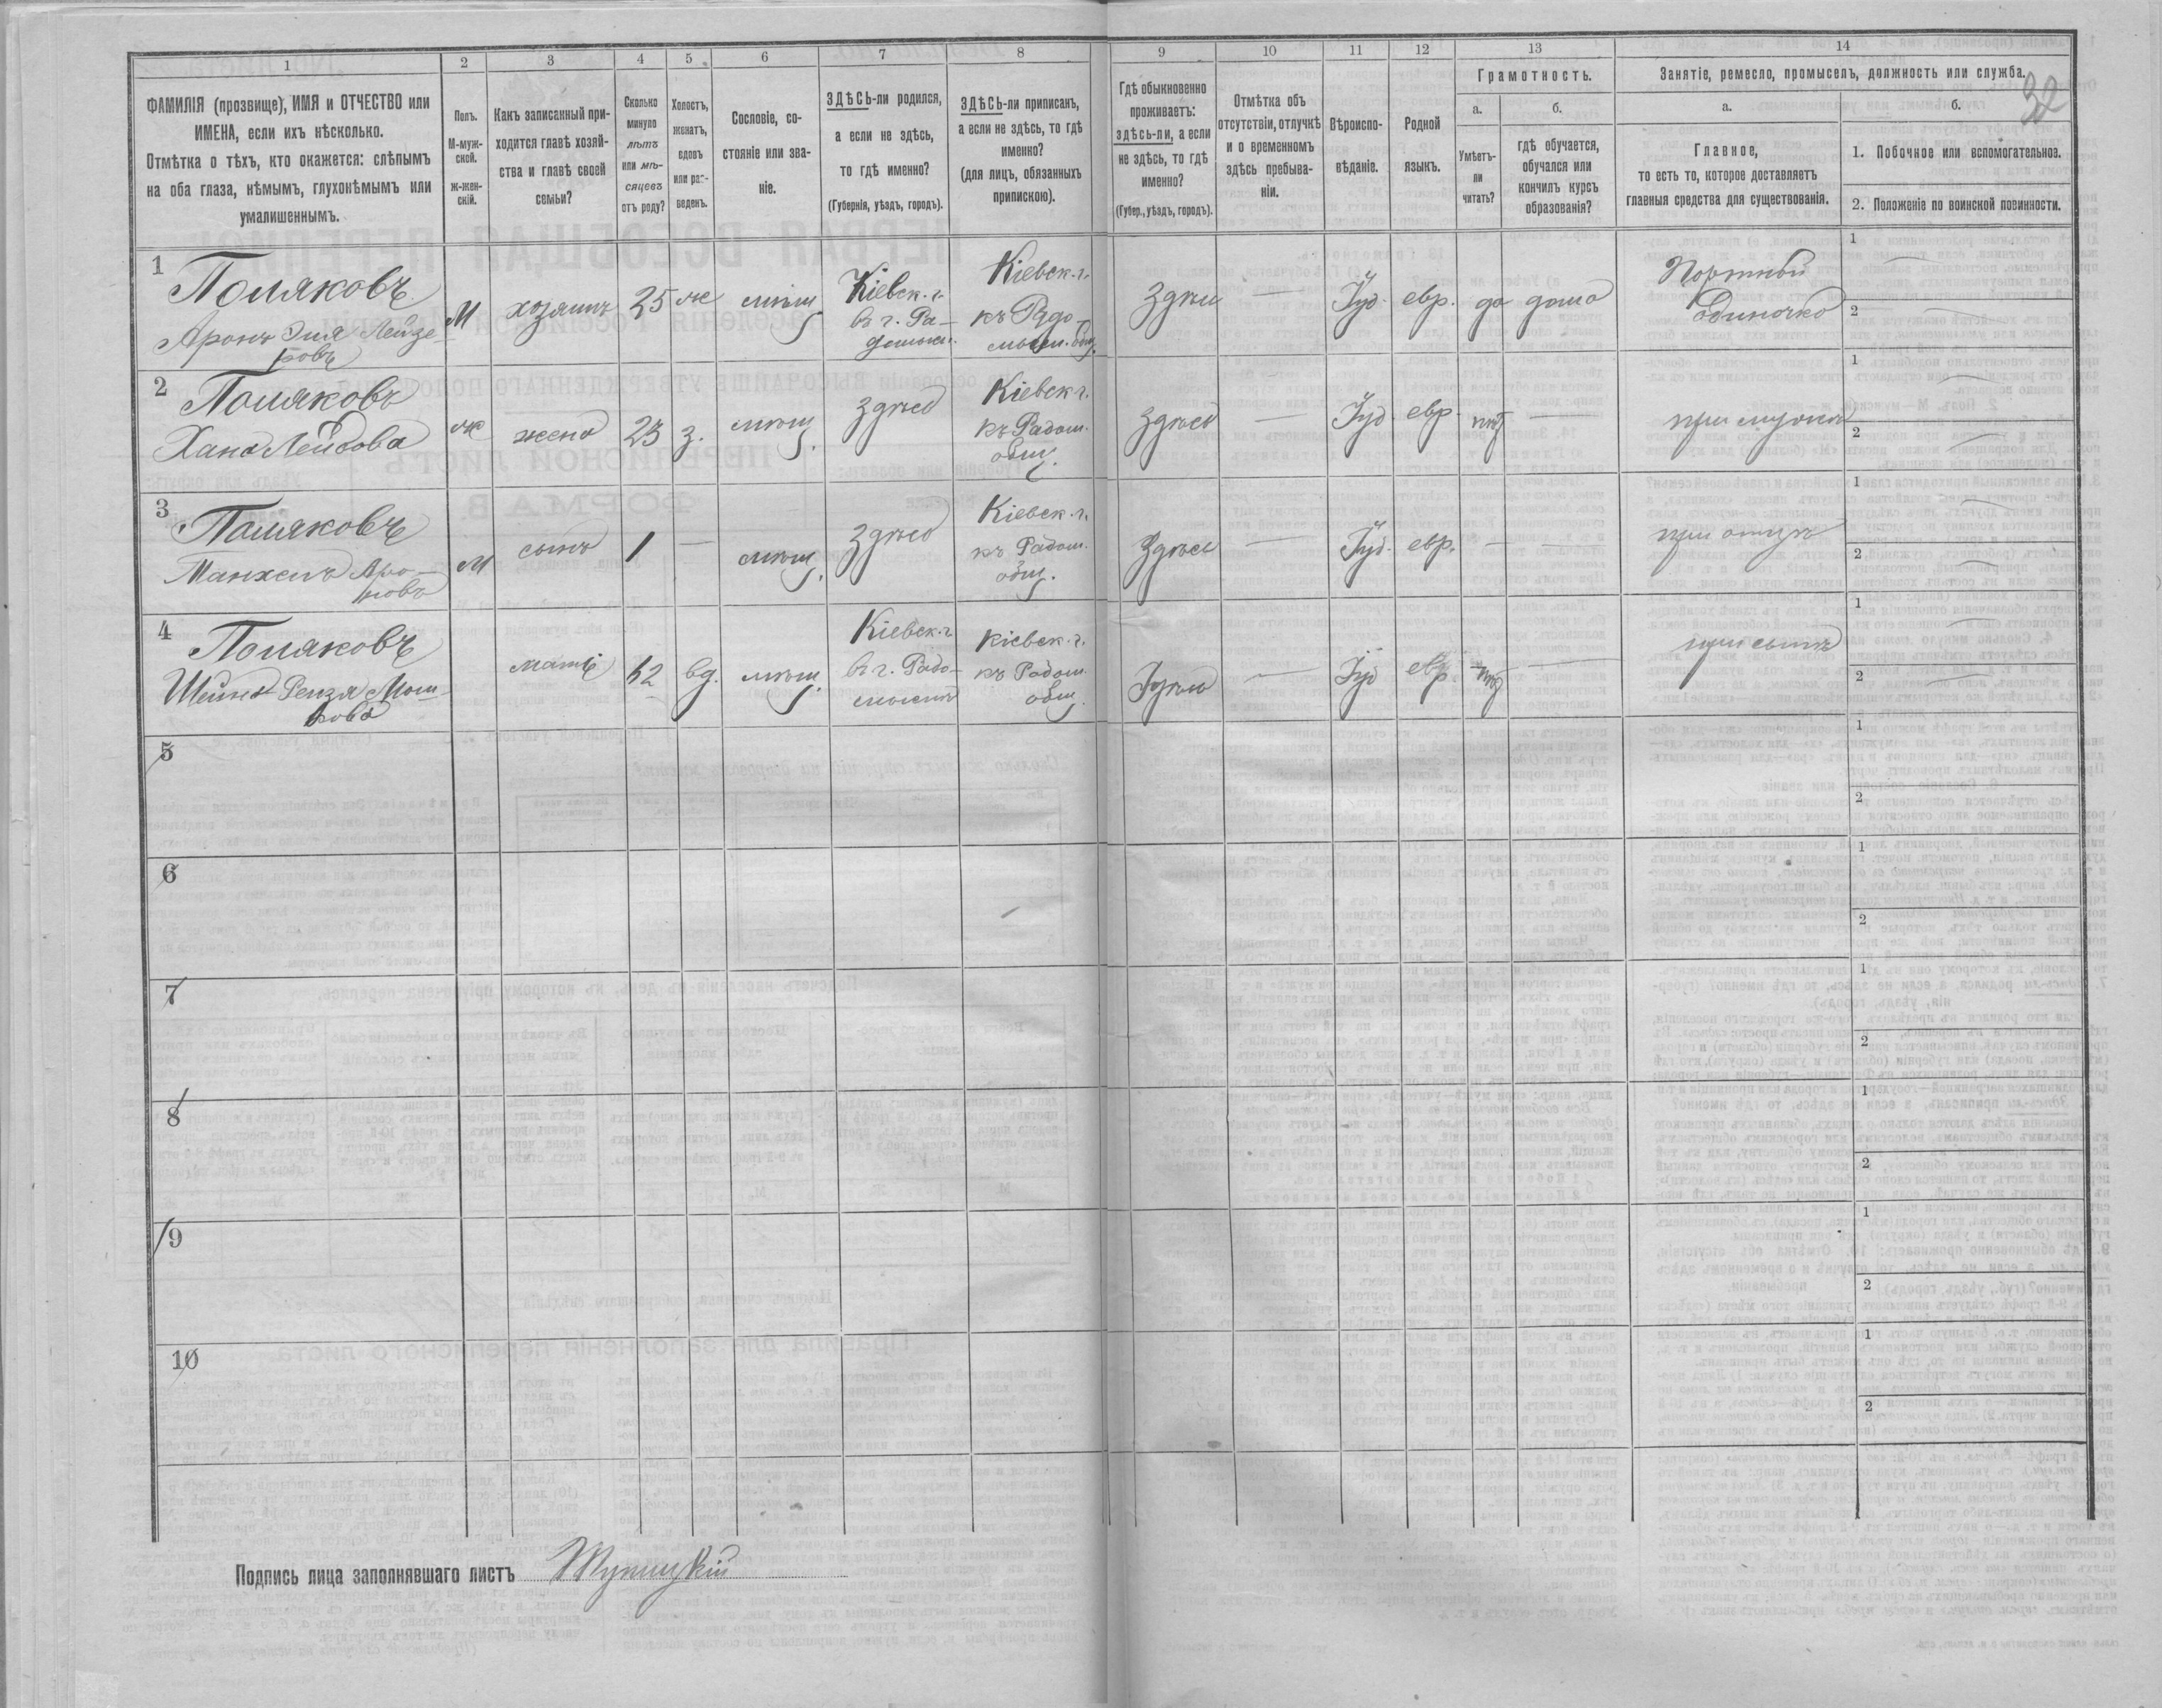 1 2 3 4 5 6 7 8 9 10 11 12 13 14
ФАМИЛІЯ (прозвище), ИМЯ и ОТЧЕСТВО или
ИМЕНА, если ихъ нѣсколько.
Отмѣтка о тѣхъ, кто окажется: слѣпымъ
на оба глаза, нѣмымъ, глухонѣмымъ или
умалишеннымъ.
Полъ.
М-муж-
ской.
ж-жен-
скій.
Какъ записанный при-
ходится главѣ хозяй-
ства и главѣ своей
семьи?
Сколько
минуло
лѣтъ
или мѣ-
сяцевъ
отъ роду?
Холостъ,
женатъ,
вдовъ
или раз-
веденъ.
Сословіе, со-
стояніе или зва-
ніе.
ЗДѢСЬ-ли родился,
а если не здѣсь,
то гдѣ именно?
(Губернія, уѣздъ, городъ).
ЗДѢСЬ-ли приписанъ,
а если не здѣсь, то гдѣ
именно?
(для лицъ, обязанныхъ
припискою).
Гдѣ обыкновенно
проживаетъ:
здѣсь-ли, а если
не здѣсь, то гдѣ
именно?
(Губер., уѣздъ, городъ).
Отмѣтка объ
отсутствіи, отлучкѣ
и о временномъ
здѣсь пребыва-
ніи.
Вѣроиспо-
вѣданіе.
Родной
языкъ.
Грамотность.
а.
Умѣетъ-
ли
читать?
б.
гдѣ обучается,
обучался или
кончилъ курсъ
образованія?
Занятіе, ремесло, промыселъ, должность или служба.
32
а.
Главное,
то есть то, которое доставляетъ
главныя средства для существованія.
б.
1. Побочное или вспомогательное.
2. Положеніе по воинской повинности.
1
Поляковъ
Аронъ Эля Лейзе-
ровъ
М
хозяинъ
25
же
мѣщ.
Кіевск. г.
въ г. Ра-
Кіевск. г.
къ Радо-
мысл. общ.
здѣсь
—
Іуд.
евр.
да
дома
Портной
одиночка
1 —
2 —
2
Поляковъ
Хана Лейбова
ж
жена
23
з.
мѣщ.
здѣсь
Кіевск г.
къ Радом.
общ.
здѣсь
—
Іуд.
евр.
нѣт
—
при мужѣ
1 —
2 —
3
Поляковъ
Манхель Аро-
новъ
М
сынъ
1
—
мѣщ.
здѣсь
Кіевск. г.
къ Радом.
общ.
здѣсь
—
Іуд.
евр.
—
—
при отцѣ
1 —
2 —
4
Поляковъ
мать
52
вд.
мѣщ.
Кіевск. г.
въ г. Радо-
мыслѣ
Кіевск. г.
къ Радом.
общ.
здѣсь
—
Іуд
евр.
нѣт
—
при сынѣ
1 —
2 —
5 1
2
6 1
2
7 1
2
8 1
2
9 1
2
10 1
2
Подпись лица заполнявшаго листъ